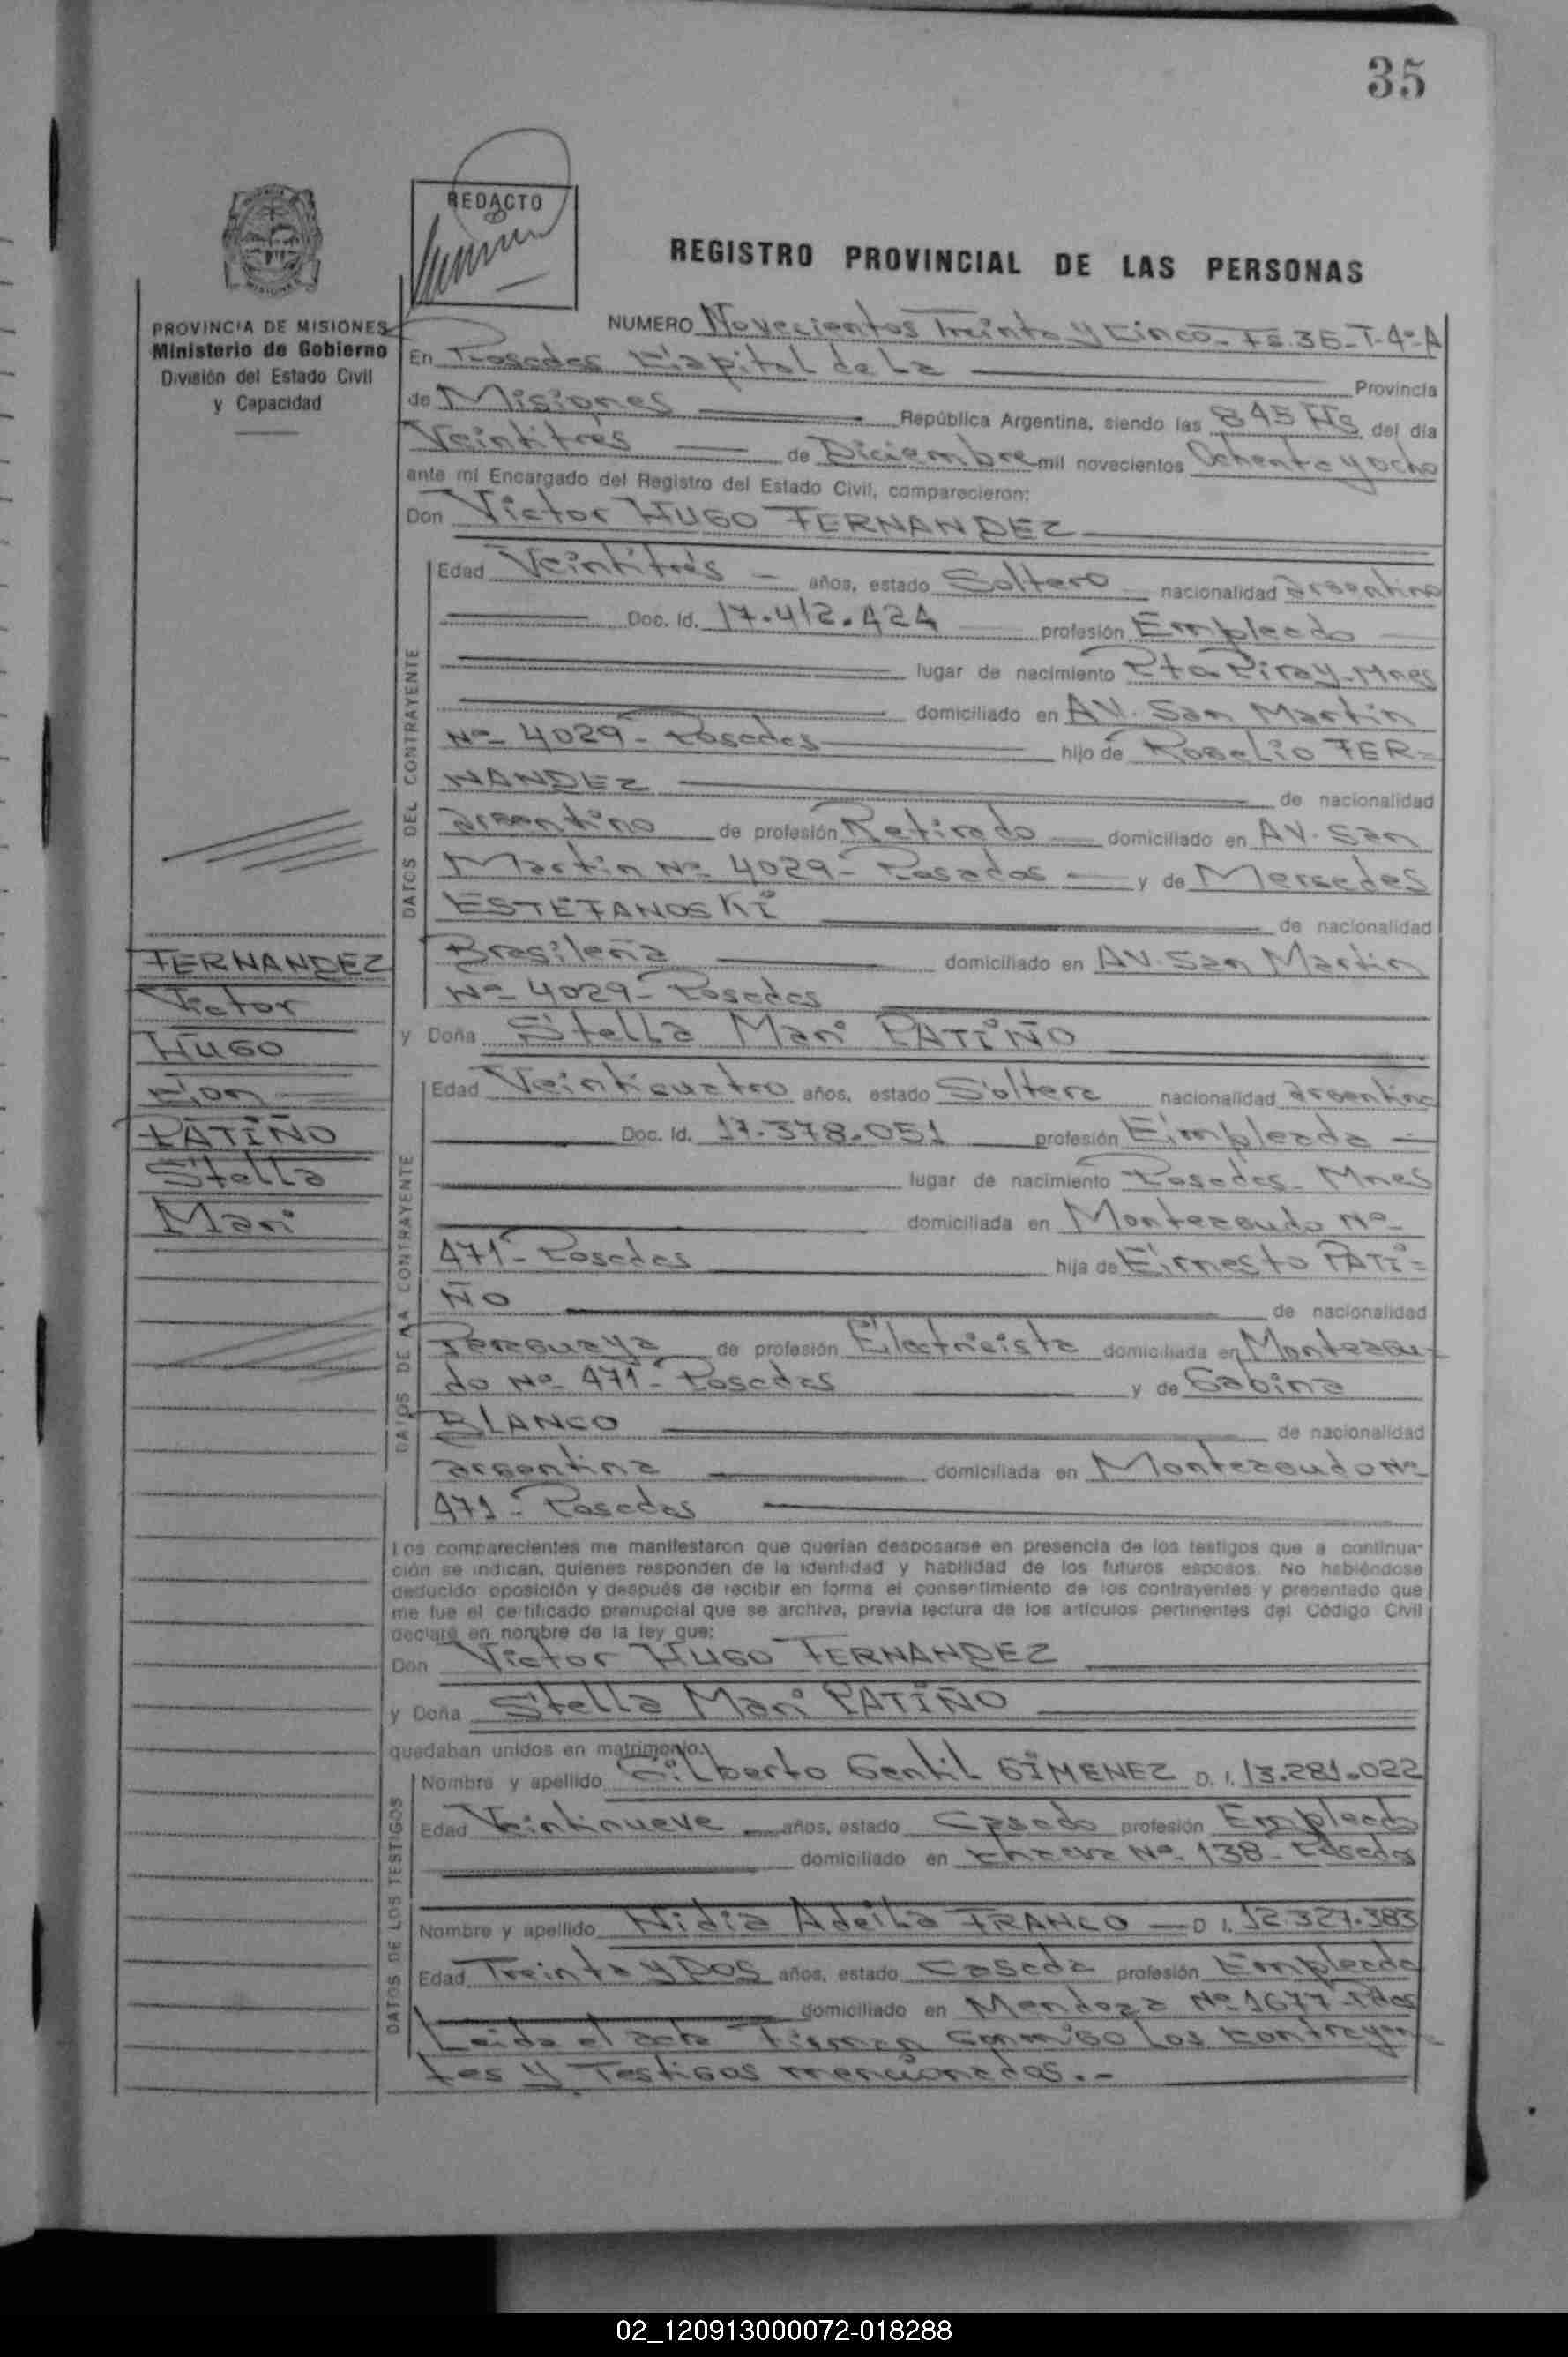 35
REDACTO
REGISTRO PROVINCIAL DE LAS PERSONAS
PROVINCIA DE MISIONES
Ministerio de Gobierno
División del Estado Civil
y Capacidad
NUMERO Novecientos Treinta y Cinco - Fº 35 - T. 4º A
En Posadas Capital de La Provincia
de Misiones República Argentina, siendo las 845 Hs del día
Veintitres de Diciembre mil novecientos Ochenta y ocho
ante mí Encargado del Registro del Estado Civil, comparecieron:
Don Victor HUGO FERNANDEZ
DATOS DEL CONTRAYENTE
Edad Veintitrés años, estado Soltero nacionalidad argentina
Doc. Id. 17.412.424 profesión Empleado
lugar de nacimiento Pto. Piray - Mnes
domiciliado en AV. San Martin
Nº 4029 - Posadas hijo de Rogelio FER=
NANDEZ de nacionalidad
argentino de profesión Retirado domiciliado en AV. San
Martin Nº 4029 - Posadas y de Mercedes
ESTEFANOSKI de nacionalidad
Brasileña domiciliado en AV. San Martin
Nº 4029 - Posadas
FERNANDEZ
Victor
HUGO
Con
PATIÑO
Stella
Mari
y Doña Stella Mari PATIÑO
DATOS DE LA CONTRAYENTE
Edad Veinticuatro años, estado Soltera nacionalidad argentina
Doc. Id. 17.378.051 profesión Empleada
lugar de nacimiento Posadas - Mnes
domiciliada en Monteagudo Nº
471 - Posadas hija de Ernesto PATI=
ÑO de nacionalidad
Paraguaya de profesión Electricista domiciliada en Monteagu-
do Nº 471 - Posadas y de Gabina
BLANCO de nacionalidad
argentina domiciliada en Monteagudo Nº
471 - Posadas
Los comparecientes me manifestaron que querían desposarse en presencia de los testigos que a continua-
ción se indican, quienes responden de la identidad y habilidad de los futuros esposos. No habiéndose
deducido oposición y después de recibir en forma el consentimiento de los contrayentes y presentado que
me fue el certificado prenupcial que se archiva, previa lectura de los artículos pertinentes del Código Civil
declaré en nombre de la ley que:
Don Victor HUGO FERNANDEZ
y Doña Stella Mari PATIÑO
quedaban unidos en matrimonio.
DATOS DE LOS TESTIGOS
Nombre y apellido Gilberto Gentil GIMENEZ D. I. 13.281.022
Edad Veintinueve años, estado Casado profesión Empleado
domiciliado en Chacra Nº 138 - Posadas
Nombre y apellido Nidia Adeila FRANCO D I. 12.327.383
Edad Treinta y DOS años, estado Casada profesión Empleada
domiciliado en Mendoza Nº 1677 - Pdas
Leida el acta Firman Conmigo Los Contrayen=
tes y Testigos mencionados.-
02_120913000072-018288